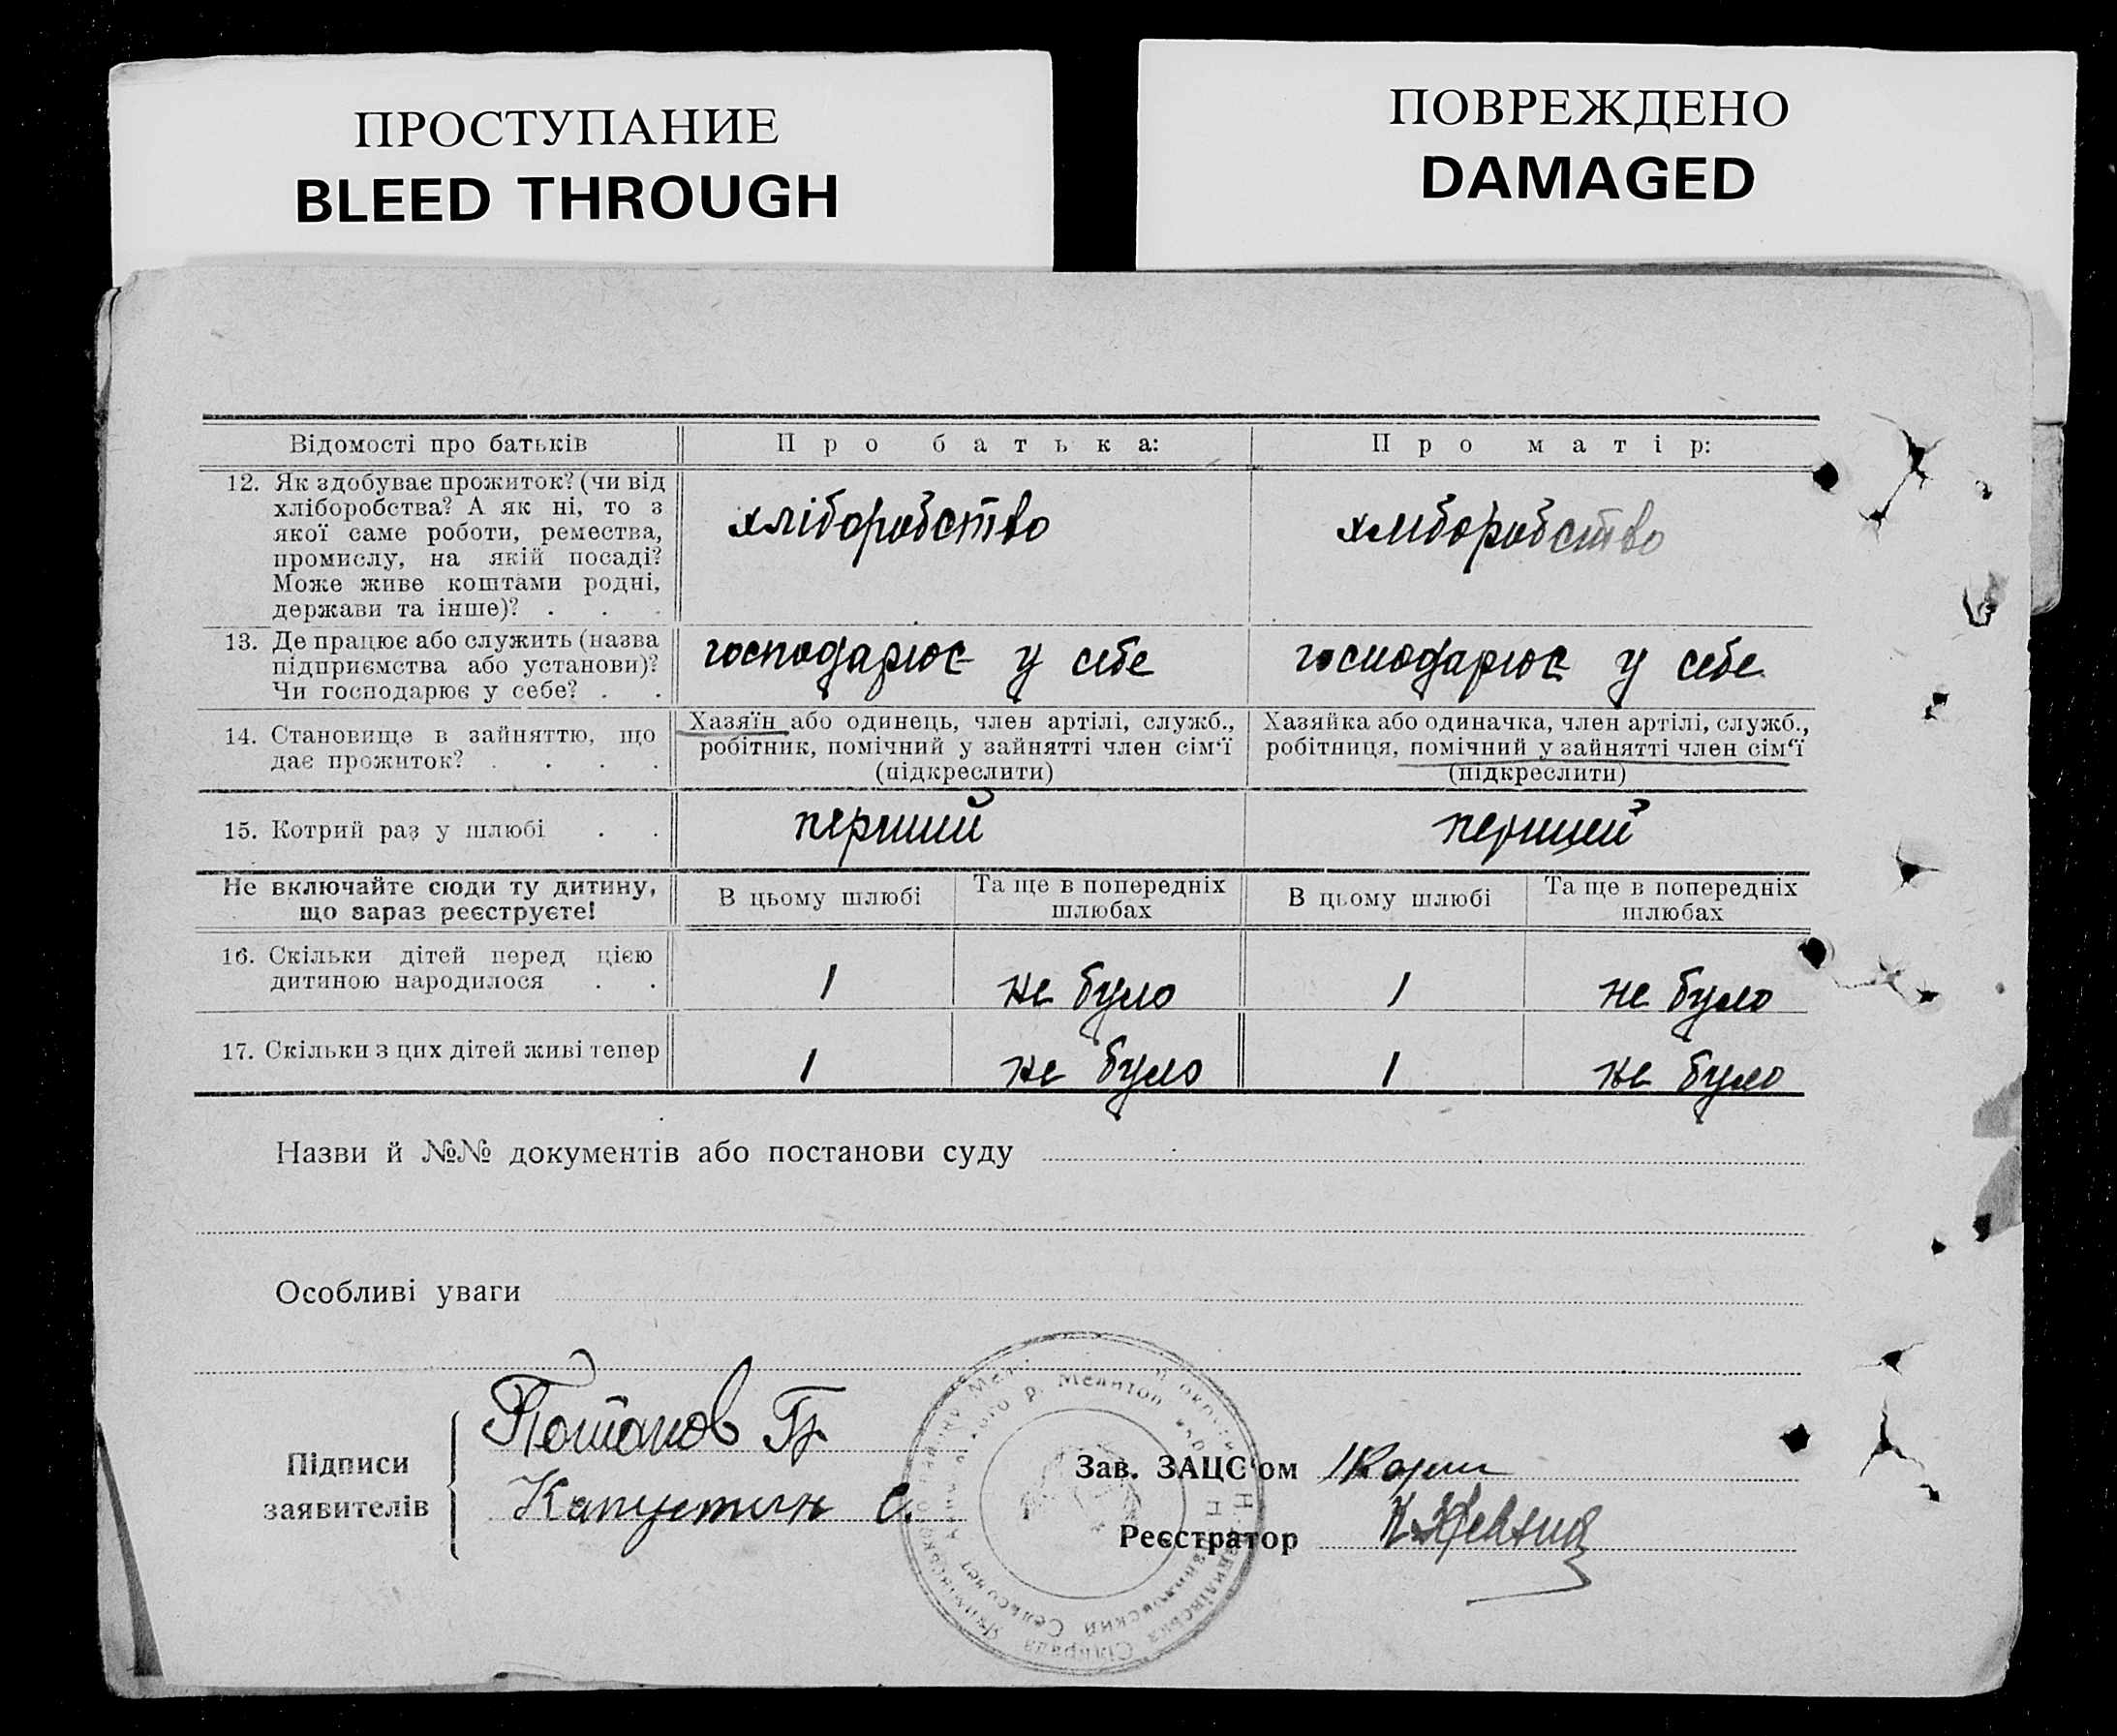 ПРОСТУПАНИЕ
BLEED THROUGH
ПОВРЕЖДЕНО
DAMAGED
Відомості про батьків
Про батька:
Про матір:
12. Як здобуває прожиток? (чи від
хліборобства? А як ні, то з
якої саме роботи, ремества,
промислу, на якій посаді?
Може живе коштами родні,
держави та інше)? . . .
хліборобство
хліборобство
13. Де працює або служить (назва
підприємства або установи)?
Чи господарює у себе? . .
господарює у себе
господарює у себе
14. Становище в зайняттю, що
дає прожиток? . . . .
Хазяїн або одинець, член артілі, служб.,
робітник, помічний у зайнятті член сім'ї
(підкреслити)
Хазяйка або одиначка, член артілі, служб.,
робітниця, помічний у зайнятті член сім'ї
(підкреслити)
15. Котрий раз у шлюбі . .
перший
перший
Не включайте сюди ту дитину,
що зараз реєструєте!
В цьому шлюбі
Та ще в попередніх
шлюбах
В цьому шлюбі
Та ще в попередніх
шлюбах
16. Скільки дітей перед цією
дитиною народилося . .
1
не було
1
не було
17. Скільки з цих дітей живі тепер
1
не було
1
не було
Назви й №№ документів або постанови суду
Особливі уваги
Підписи
заявителів
Потапов Гр
Капустин С.
Зав. ЗАЦС'ом
Реєстратор
Сільрада